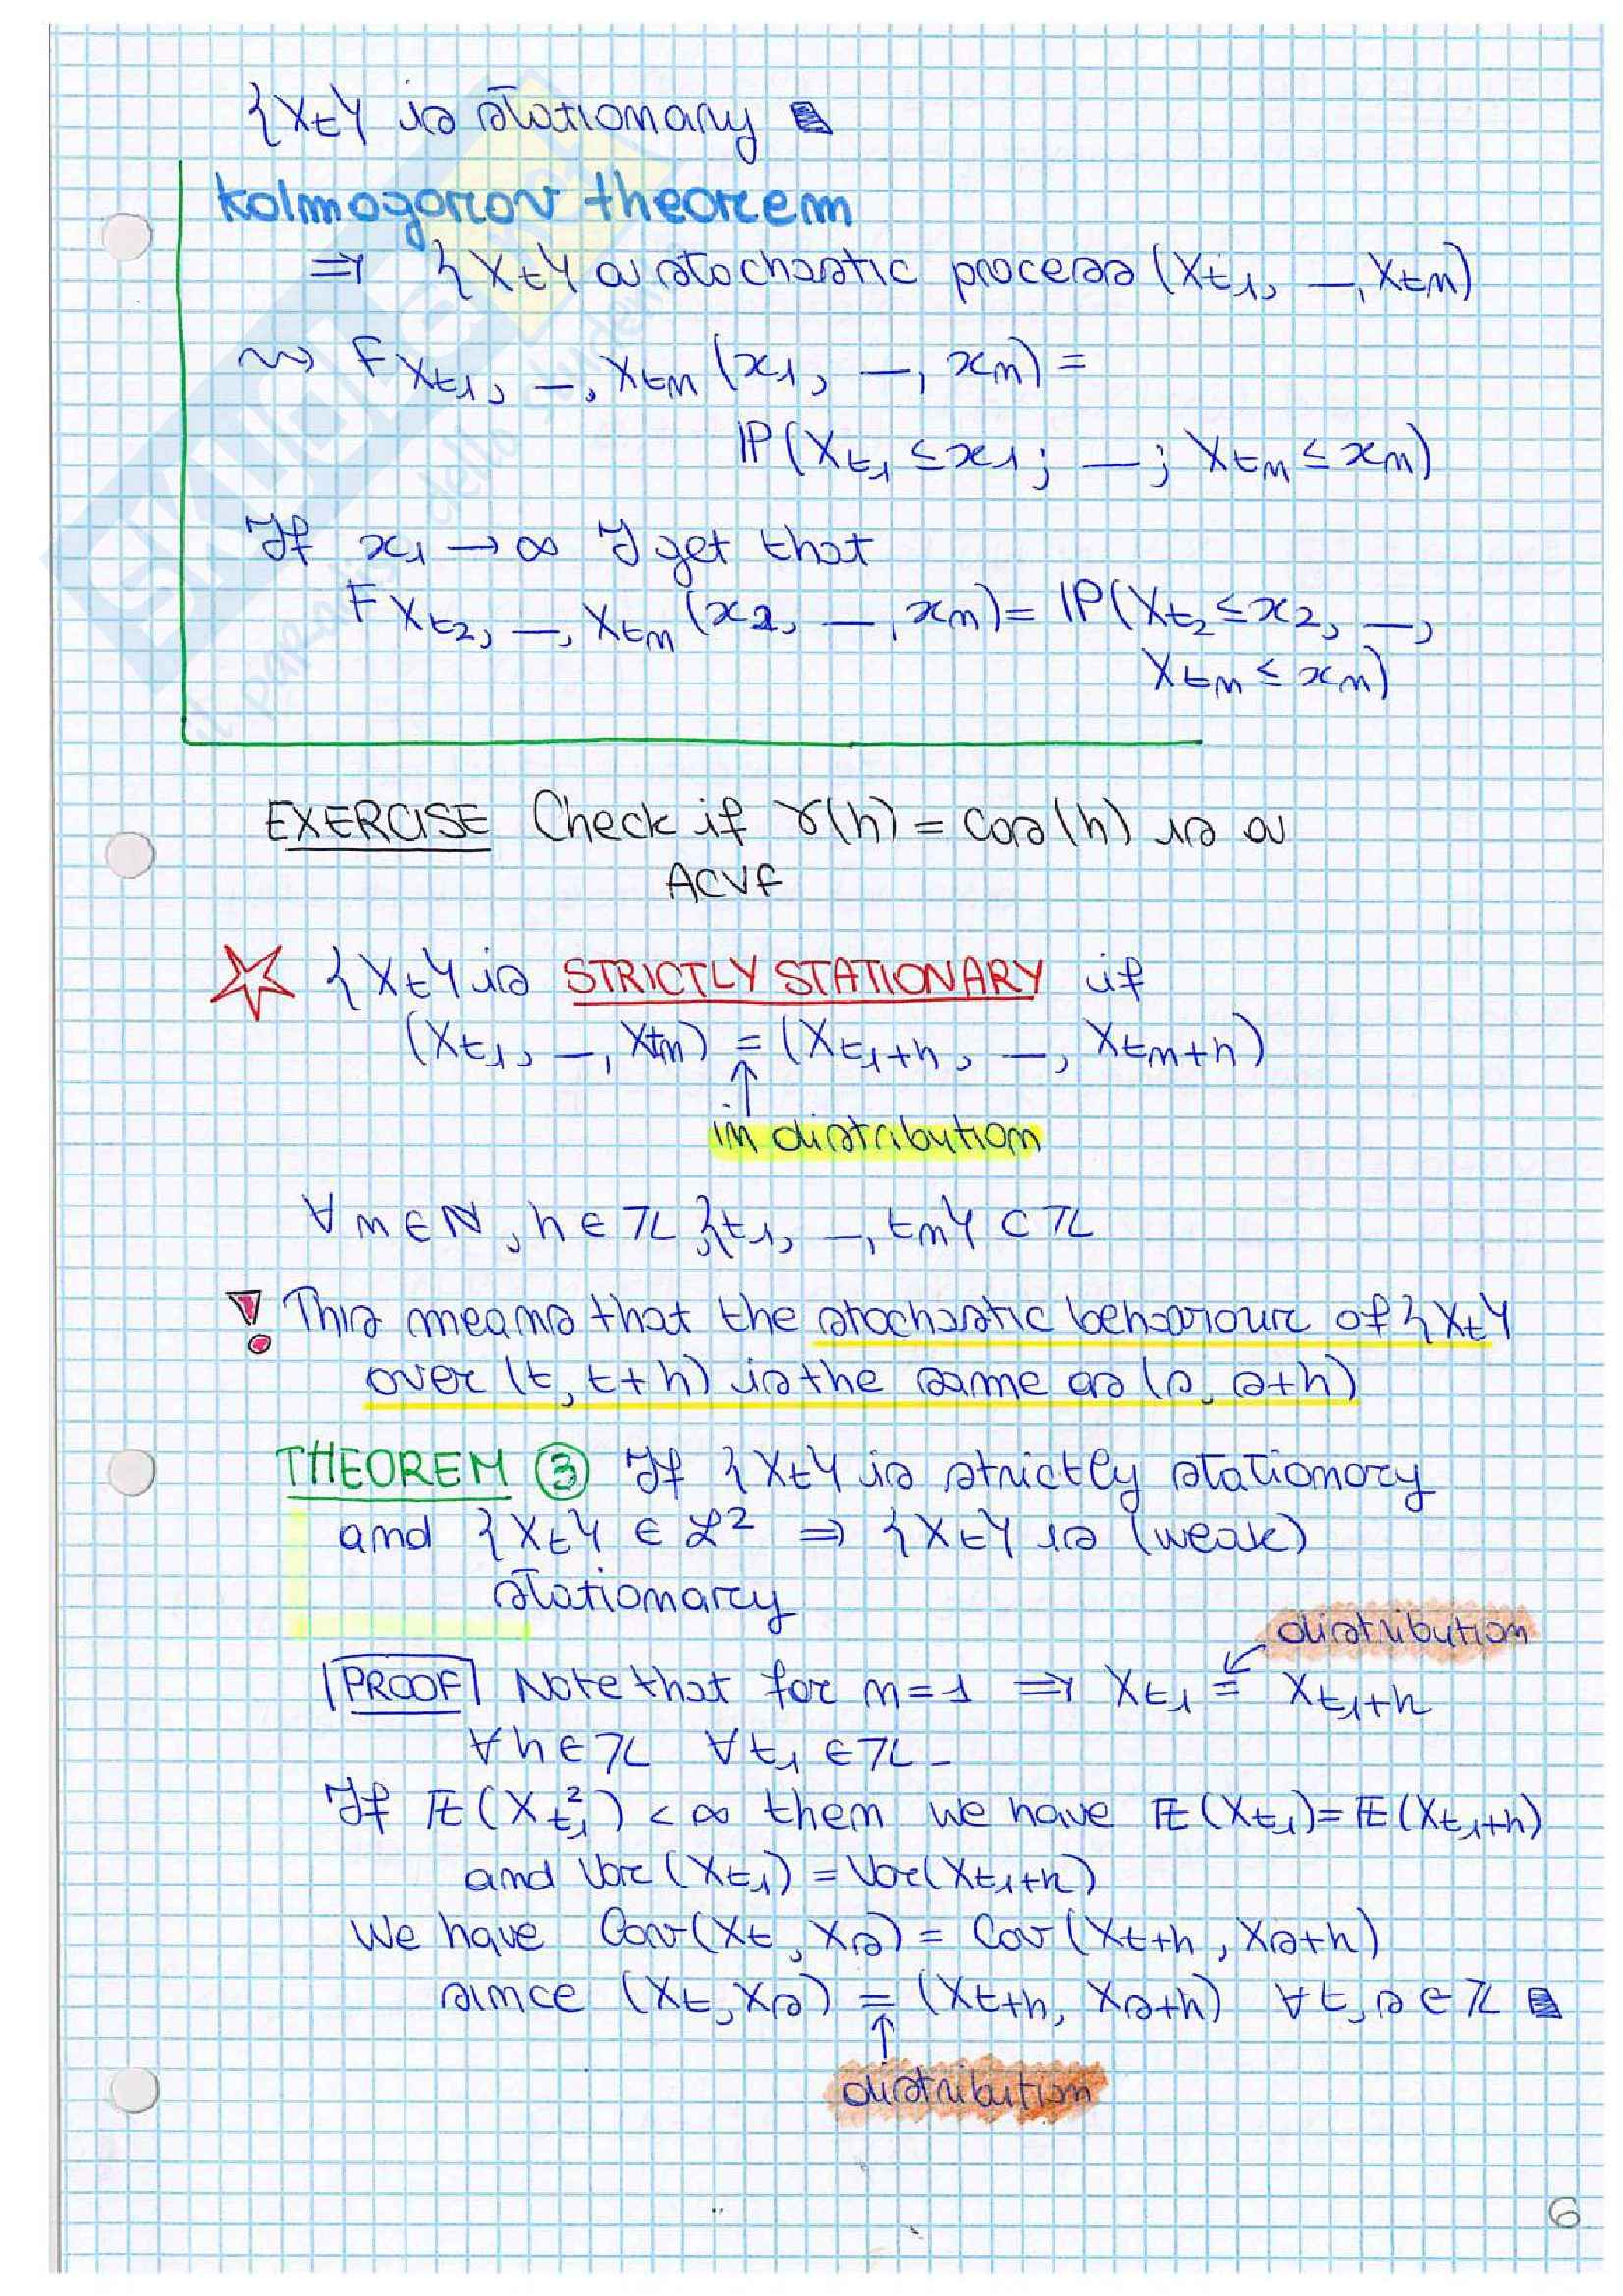 {Xt} is stationary
Kolmogorov theorem
⇒ {Xt} a stochastic process (Xt1, —, Xtn)
⇝ F Xt1, —, Xtn (x1, —, xn) =
ℙ(Xt1 ≤ x1; —; Xtn ≤ xn)
If x1 → ∞ I get that
F Xt2, —, Xtn (x2, —, xn) = ℙ(Xt2 ≤ x2, —,
Xtn ≤ xn)
EXERCISE Check if γ(h) = cos(h) is a
ACVF
{Xt} is STRICTLY STATIONARY if
(Xt1, —, Xtn) = (Xt1+h, —, Xtn+h)
↑
in distribution
∀ n ∈ ℕ, h ∈ ℤ, {t1, —, tn} ⊂ ℤ
! This means that the stochastic behaviour of {Xt}
over (t, t+h) is the same as (s, s+h)
THEOREM ③ If {Xt} is strictly stationary
and {Xt} ∈ ℒ² ⇒ {Xt} is (weak)
stationary
distribution
PROOF Note that for n=1 ⇒ Xt1 = Xt1+h
∀ h ∈ ℤ ∀ t1 ∈ ℤ.
If 𝔼(Xt1²) < ∞ then we have 𝔼(Xt1) = 𝔼(Xt1+h)
and Var(Xt1) = Var(Xt1+h)
We have Cov(Xt, Xs) = Cov(Xt+h, Xs+h)
since (Xt, Xs) = (Xt+h, Xs+h) ∀ t, s ∈ ℤ
↑
distribution
6